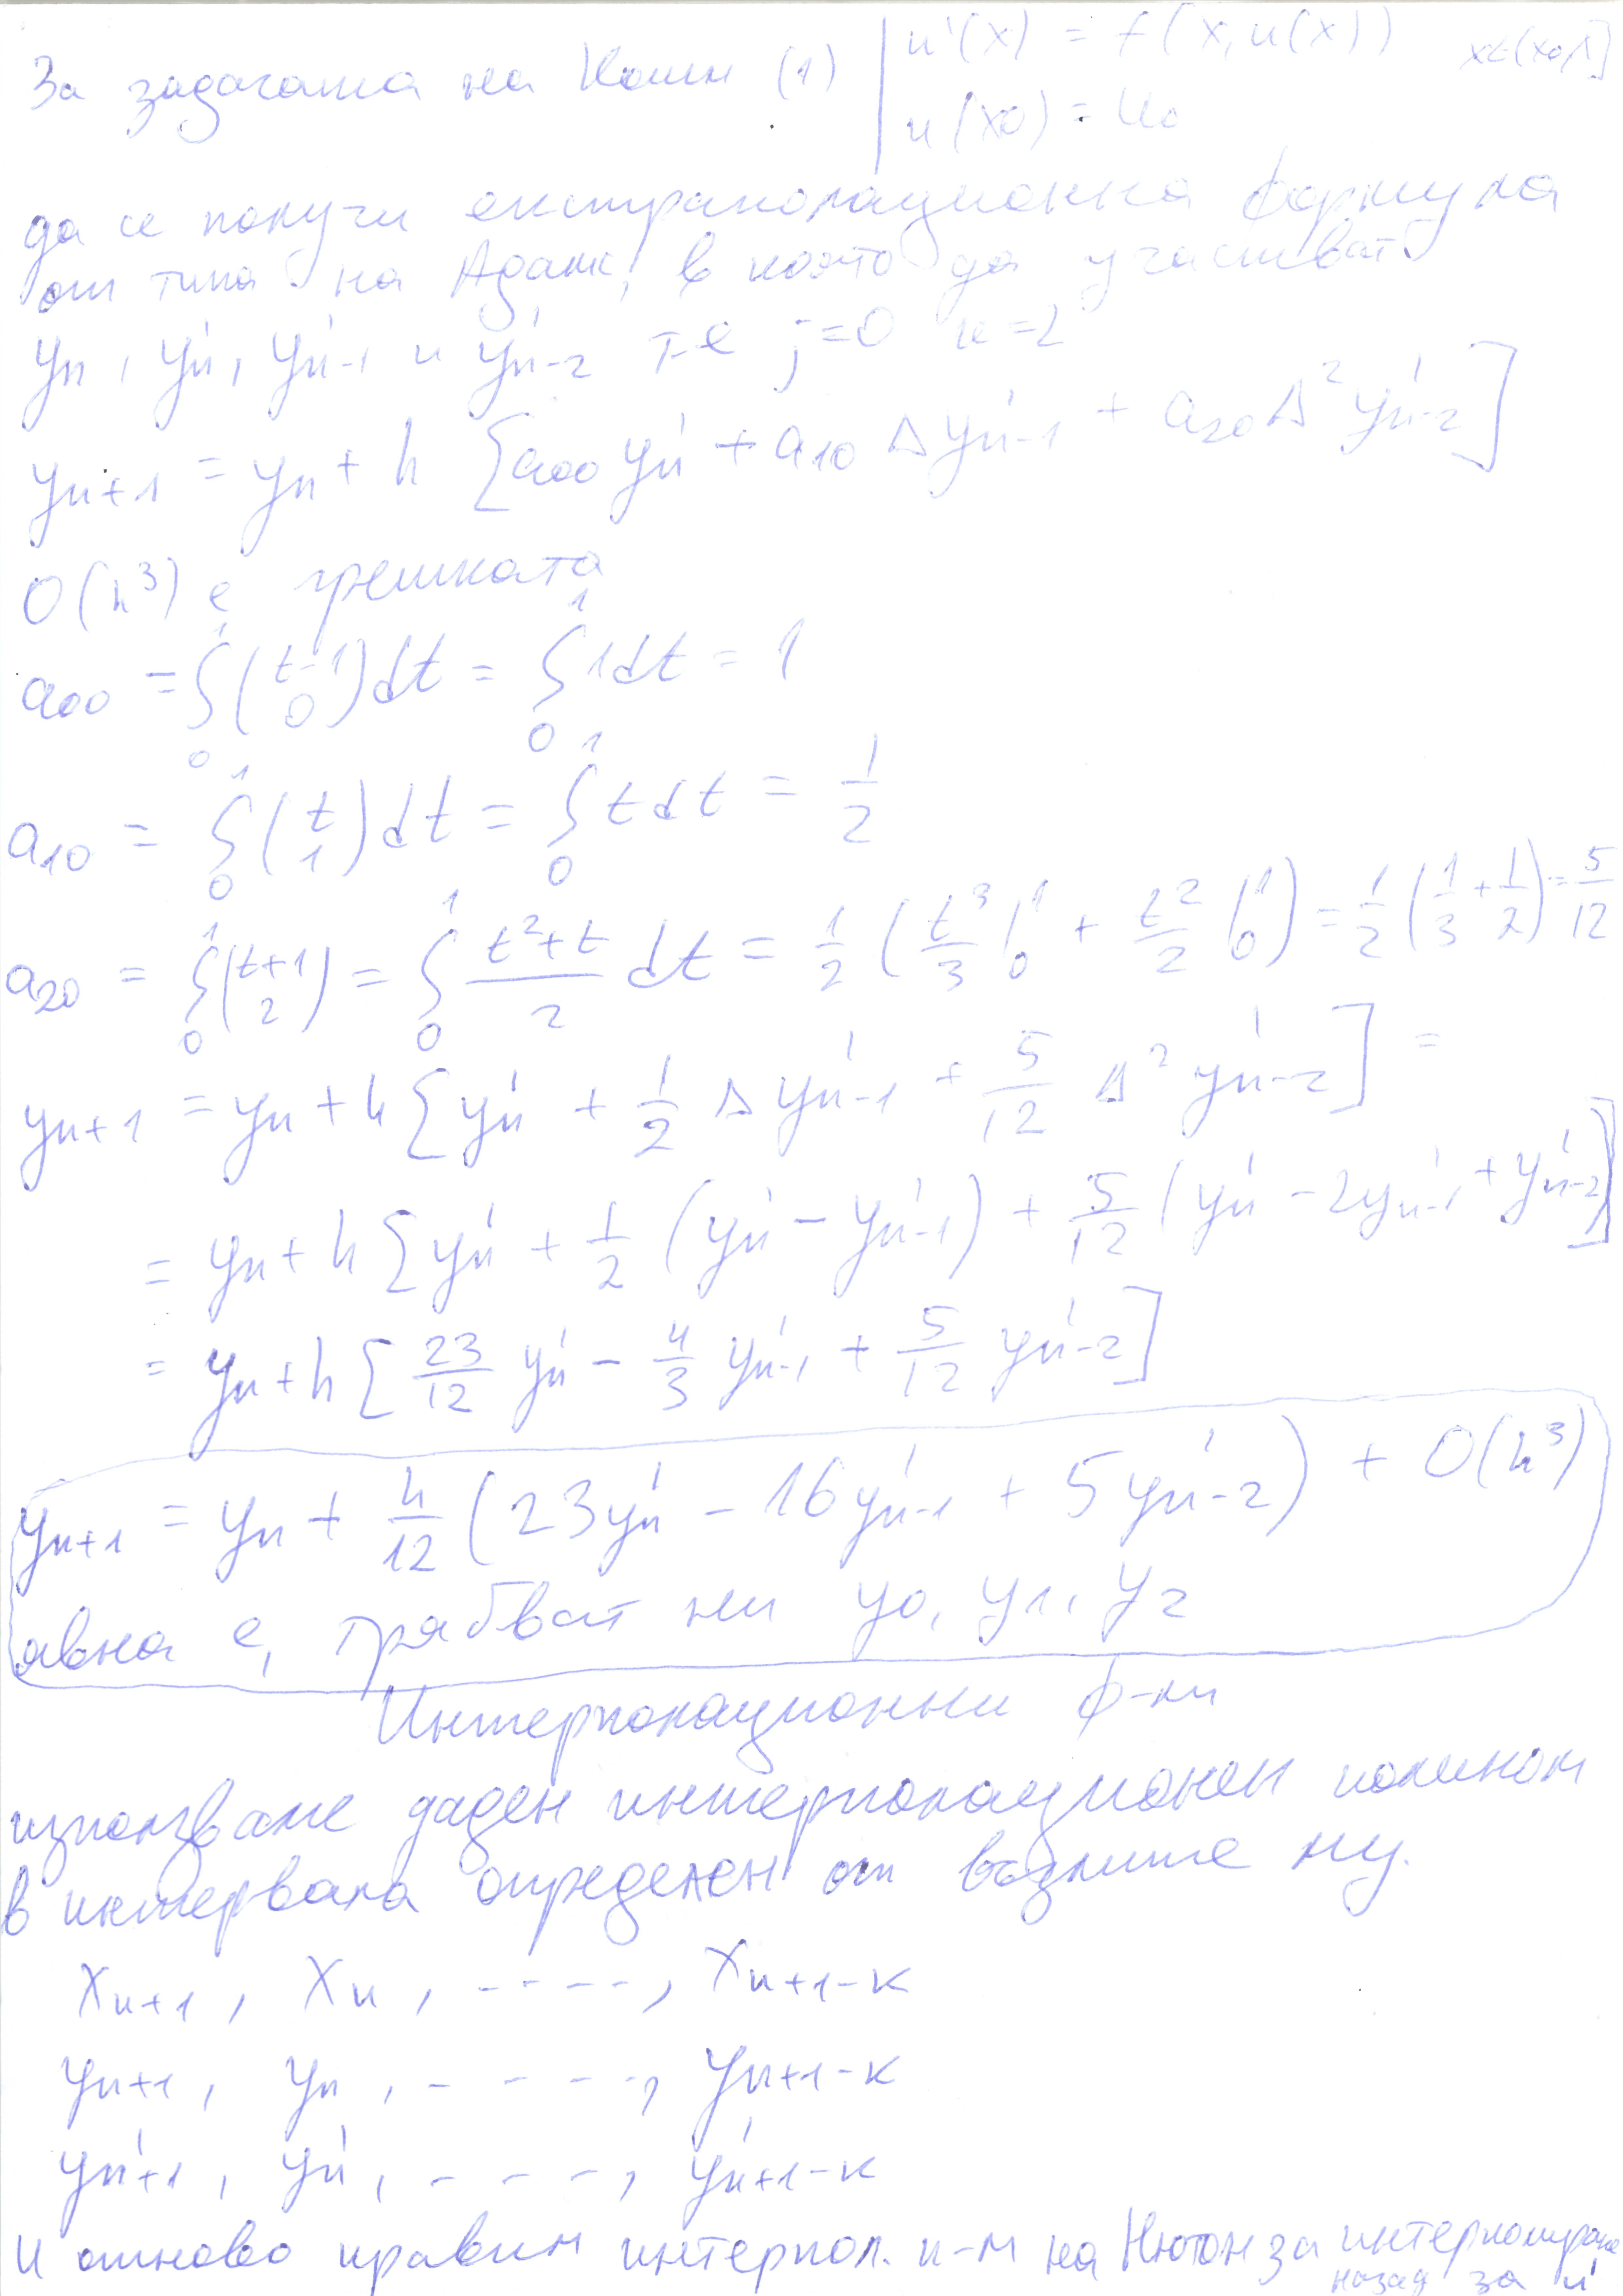 За задачата на Коши (1) | u'(x) = f(x, u(x)) x∈(x0, A]
u(x0) = u0
да се получи екстраполационна формула
от типа на Адамс, в която да участват
yn, y'n, y'n-1 и y'n-2 т-е j=0 к=2
yn+1 = yn + h [a00 y'n + a10 Δy'n-1 + a20 Δ² y'n-2]
O(h³) е грешката
a00 = ∫₀¹ (t-1 0) dt = ∫₀¹ 1dt = 1
a10 = ∫₀¹ (t 1) dt = ∫₀¹ t dt = 1/2
a20 = ∫₀¹ (t+1 2) = ∫₀¹ (t²+t)/2 dt = 1/2 (t³/3 |₀¹ + t²/2 |₀¹) = 1/2 (1/3 + 1/2) = 5/12
yn+1 = yn + h [y'n + 1/2 Δ y'n-1 + 5/12 Δ² y'n-2] =
= yn + h [y'n + 1/2 (y'n - y'n-1) + 5/12 (y'n - 2y'n-1 + y'n-2)]
= yn + h [23/12 y'n - 4/3 y'n-1 + 5/12 y'n-2]
yn+1 = yn + h/12 (23y'n - 16y'n-1 + 5y'n-2) + O(h³)
явна е, трябват ни y0, y1, y2
Интерполационни ф-ли
използваме даден интерполационен полином
в интервала определен от възлите му.
xn+1, xn, ----, xn+1-к
yn+1, yn, - - - -, yn+1-к
y'n+1, y'n, - - - -, y'n+1-к
И отново правим интерпол. п-м на Нютон за интерполиране
назад за u'